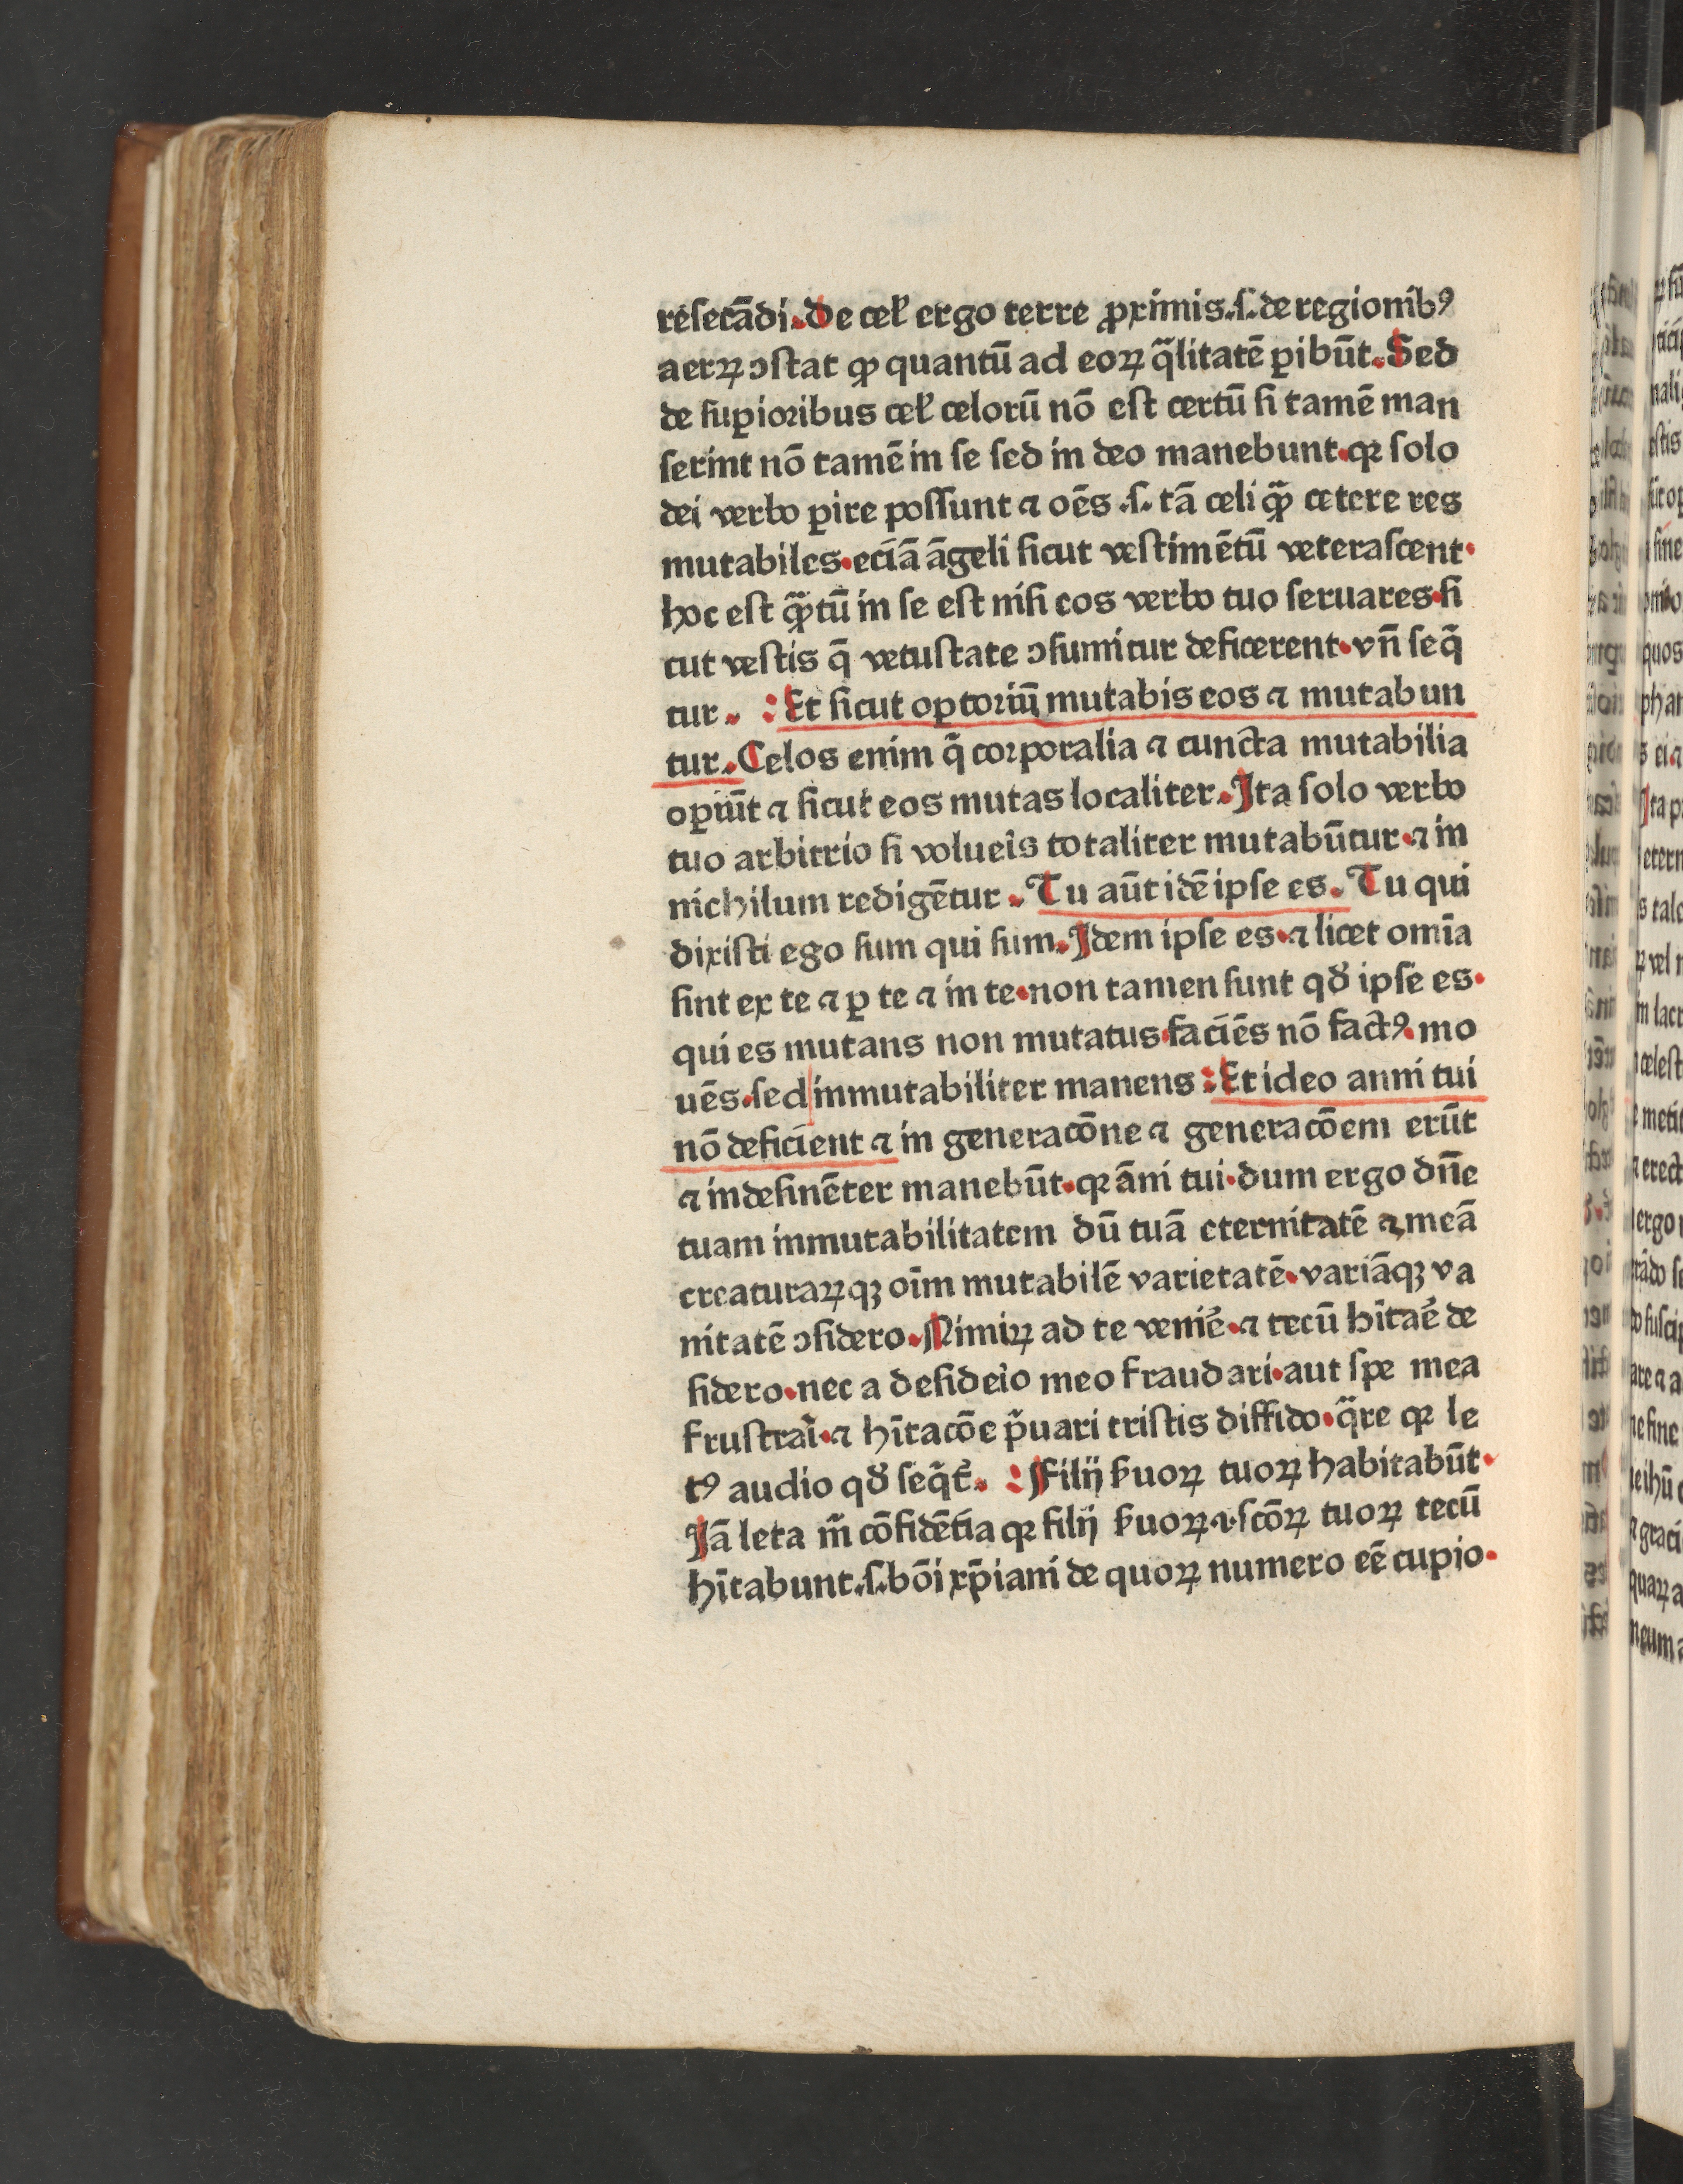 reserādi. De celꝉ ergo terre ꝓximis .s. de regionibꝰ
aerꝝ ↄstat ꝙ quantū ad eoꝝ q̄litatē ꝑibūt. Sed
de suꝑioribus celꝉ celorū nō est certū si tamē man
serint nō tamē in se sed in deo manebunt. qꝛ solo
dei verbo ꝑire possunt ⁊ oēs .s. tā celi quā̄ cetere res
mutabiles. eciā āgeli sicut vestimētū veterascent.
hoc est quātū in se est nisi eos verbo tuo seruares. si
cut vestis q̄ vetustate ↄsumitur deficerent. vn̄ seq̄
tur. : Et sicut oꝑtoriū mutabis eos ⁊ mutabun
tur. Celos enim q̄ corporalia ⁊ cuncta mutabilia
oꝑiūt ⁊ sicut eos mutas localiter. Ita solo verbo
tuo arbitrio si volueis totaliter mutabūtur. ⁊ in
nichilum redigētur. Tu aūt idē ipse es. Tu qui
dixisti ego sum qui sum. Idem ipse es. ⁊ licet omīa
sint ex te ⁊ ꝑ te ⁊ in te. non tamen sunt qd̕ ipse es.
qui es mutans non mutatus. faciēs nō factꝰ. mo
uēs. sed inmutabiliter manens : Et ideo anni tui
nō deficient ⁊ in generacōne ⁊ generacōem erūt
⁊ indefinēter manebūt. qꝛ āni tui. dum ergo dn̄e
tuam inmutabilitatem dū tuā eternitatē ⁊ meā
creaturaꝝqꝫ oīm mutabilē varietatē. variāqꝫ va
nitatē ↄsidero. Nimiꝝ ad te venie᷑. ⁊ tecū hītae᷑ de
sidero. nec a desideio meo fraudari. aut spe mea
frustrai. ⁊ hītacōe p̄uari tristis diffido. q̄re qꝛ le
tꝰ audio qd̕ seq̄t᷑. : Filij ẜuoꝝ tuoꝝ habitabūt.
Jā leta m̄ cōfidētia qꝛ filij ẜuoꝝ ⁊ scōꝝ tuoꝝ tecū
hītabunt .s. bōi xp̄iani de quoꝝ numero eē cupio.